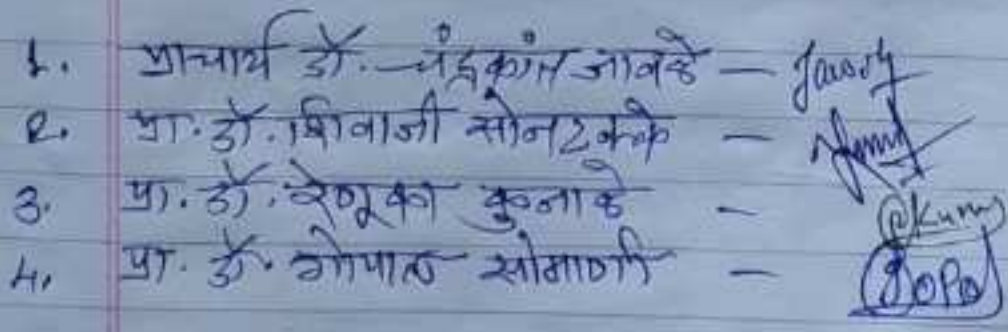 1. प्राचार्य डॉ. चंद्रकांत जावळे —
2. प्रा. डॉ. शिवाजी सोनटक्के —
3. प्रा. डॉ. रेणूका कुनाळे —
4. प्रा. डॉ. गोपाल सोमाणी —